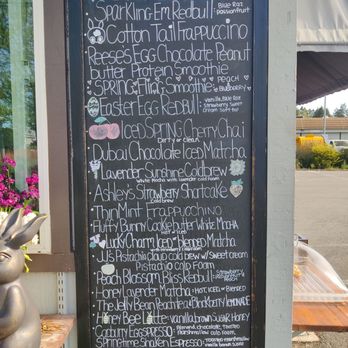 Sparkling Em Redbull: Blue Raz
Passionfruit
Cotton Tail Frappucino
Reese's EGG Chocolate Peanut
butter Protein Smoothie
SPRING Fling Smoothie: PEACH
Blueberry
Easter Egg Redbull: Vanilla, Blue Raz
Strawberry Sweet
Cream Soft top
Iced Spring Cherry Chai
Dirty or Clean
Dubai Chocolate Iced Matcha
Lavender Sunshine Coldbrew
White Mocha with lavender cold foam
Ashley's Strawberry Shortcake
Cold brew
Thin Mint Frappuchino
Fluffy Bunny Cookie butter White Mocha
Lucky Charm Iced or Blended Matcha
JJ's Pistachio cold brew w/ sweet cream
Pistachio cold Foam
Peach Blossom Bliss Redbull: Strawberry
Honey Lavender Matcha HOT ICED or BLENDED
The Jelly Bean Peach Tea/Blackberry Lemonade
Honey Bee Latte: vanilla, brown sugar, Honey
Cadbury Eggspresso: Almond, chocolate, toasted
marshmallow cold foam
Springtime Shaken Espresso: Toasted marshmallow